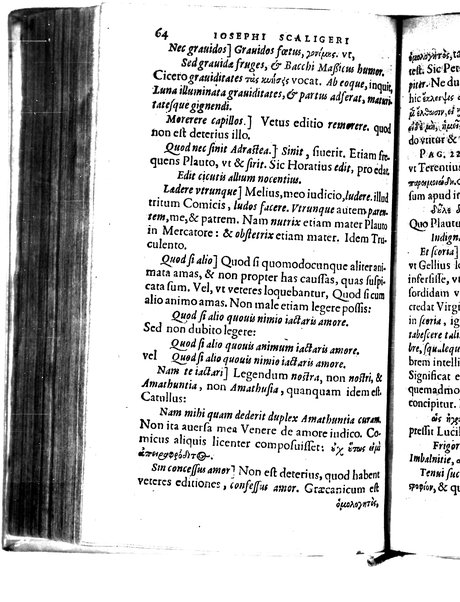 64 IOSEPHI SCALIGERI
Nec grauidos] Grauidos fœtus, γονίμης. vt,
Sed grauidæ fruges, & Bacchi Massicus humor.
Cicero grauiditates τὰς κυήσεις vocat. Ab eoque, inquit,
Luna illuminata grauiditates, & partus adferat, maturi-
tatesque gignendi.
Morerere capillos.] Vetus editio remorere. quod
non est deterius illo.
Quod nec sinit Adrastea.] Sinit, siuerit. Etiam fre-
quens Plauto, vt & sirit. Sic Horatius edit, pro edat.
Edit cicutis allium nocentius.
Ladere vtrunque] Melius, meo iudicio, ludere. illud
tritum Comicis, ludos facere. Vtrunque autem paren-
tem, me, & patrem. Nam nutrix etiam mater Plauto
in Mercatore: & obstetrix etiam mater. Idem Tru-
culento.
Quod si alio] Quod si quomodocunque aliter ani-
mata amas, & non propter has caussas, quas suspi-
cata sum. Vel, vt veteres loquebantur, Quod si cum
alio animo amas. Non male etiam legere possis:
Quod si alio quouis nimio iactaris amore.
Sed non dubito legere:
Quod si alio quouis animum iactaris amore.
vel Quod si alio quouis nimio iactaris amore.
Nam te iactari] Legendum nostra, non nostri, &
Amathuntia, non Amathusia, quanquam idem est.
Catullus:
Nam mihi quam dederit duplex Amathuntia curam.
Non ita auersa mea Venere de amore iudico. Co-
micus aliquis licenter composuisset: οὐχ οὕτως εἰμὶ
ἀπειροφρόδιτος.
Sin concessus amor] Non est deterius, quod habent
veteres editiones, confessus amor. Græcanicum est
ὁμολογητὸς,
ὁμολογητὸς, τα
test. Sic Pet
piter. Ne du
PAG. 22
vt Terentius
sum apud i
Quo Plautu
Indign
Et scoria]
vt Gellius l
infersisse, vt
sordidam v
credat Virgi
in scoria, ig
tabescere tali
bre, squaleque
brem intelli
Significat e
quemadmo
concipitur. I
pressit Lucil
Frigor
Imbalnitie, a
Tenui suc